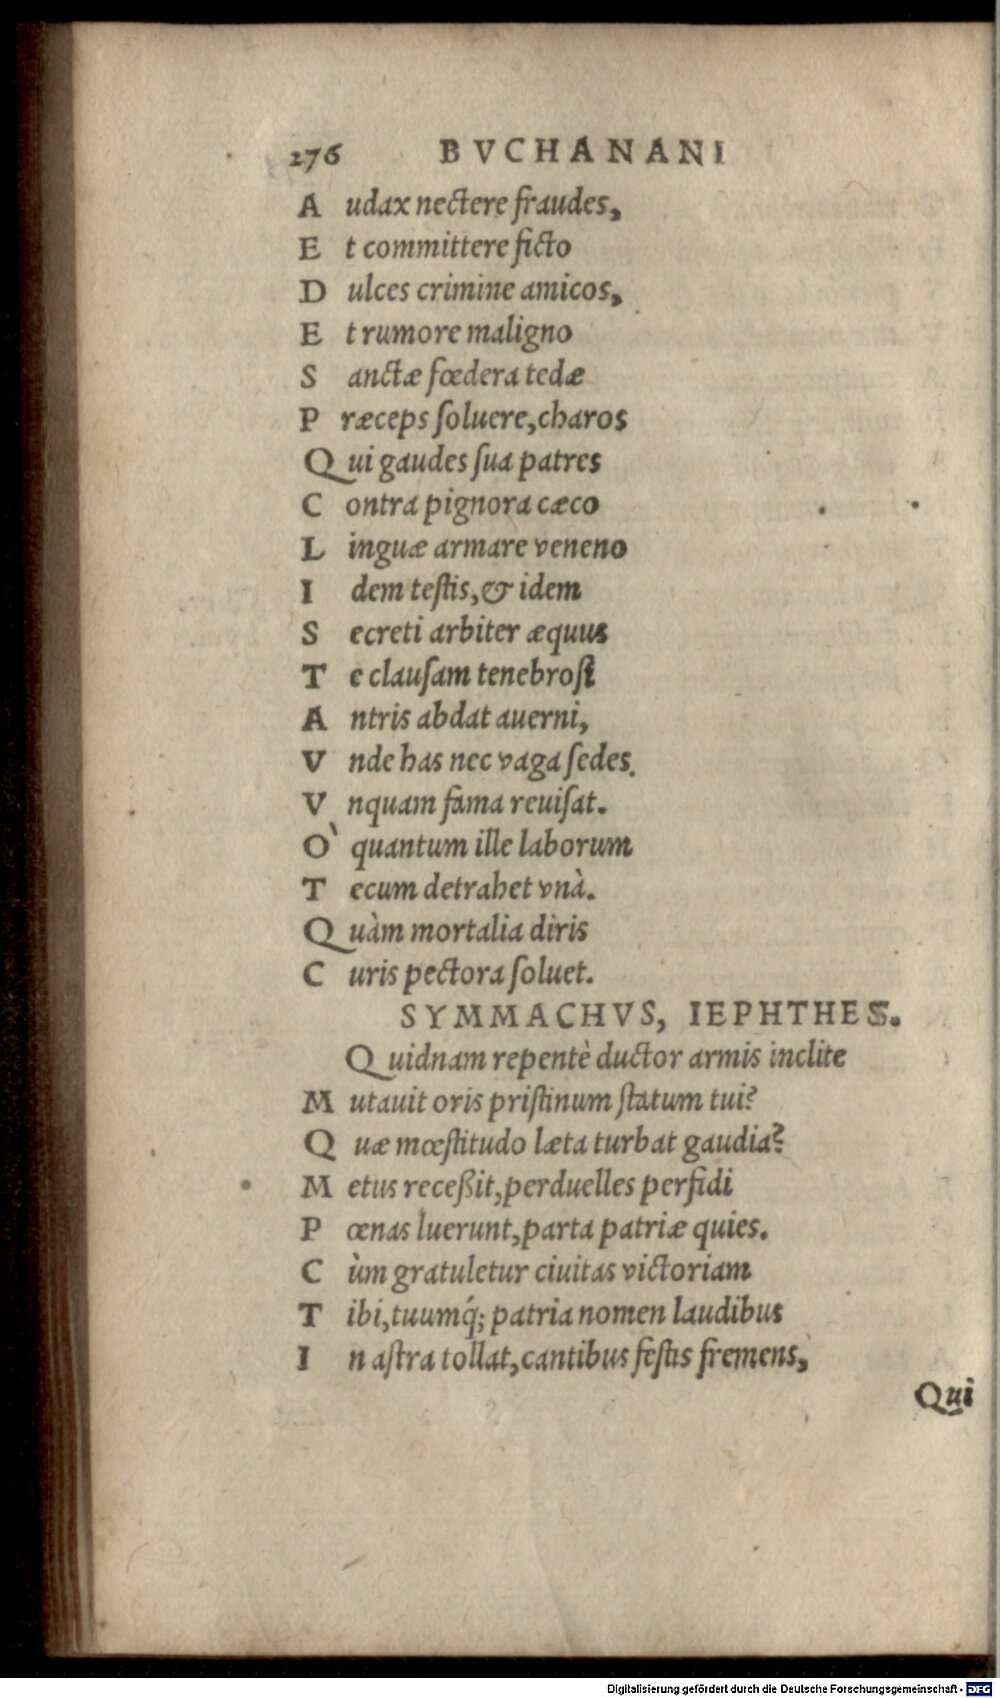 276 BVCHANANI
Audax nectere fraudes,
Et committere ficto
Dulces crimine amicos,
Et rumore maligno
Sanctæ fœdera tedæ
Præceps ſoluere, charos
Qui gaudes ſua patres
Contra pignora cæco
Linguæ armare veneno
Idem teſtis, & idem
Secreti arbiter æquus
Te clauſam tenebroſi
Antris abdat auerni,
Vnde has nec vaga ſedes.
Vnquam fama reuiſat.
O` quantum ille laborum
Tecum detrahet vnà.
Quàm mortalia diris
Curis pectora ſoluet.
SYMMACHVS, IEPHTHES.
Quidnam repentè ductor armis inclite
Mutauit oris priſtinum ſtatum tui?
Quæ mœſtitudo læta turbat gaudia?
Metus receßit, perduelles perfidi
Pœnas luerunt, parta patriæ quies.
Cùm gratuletur ciuitas victoriam
Tibi, tuumq́; patria nomen laudibus
In aſtra tollat, cantibus feſtis fremens,
Qui
Digitalisierung gefördert durch die Deutsche Forschungsgemeinschaft - DFG